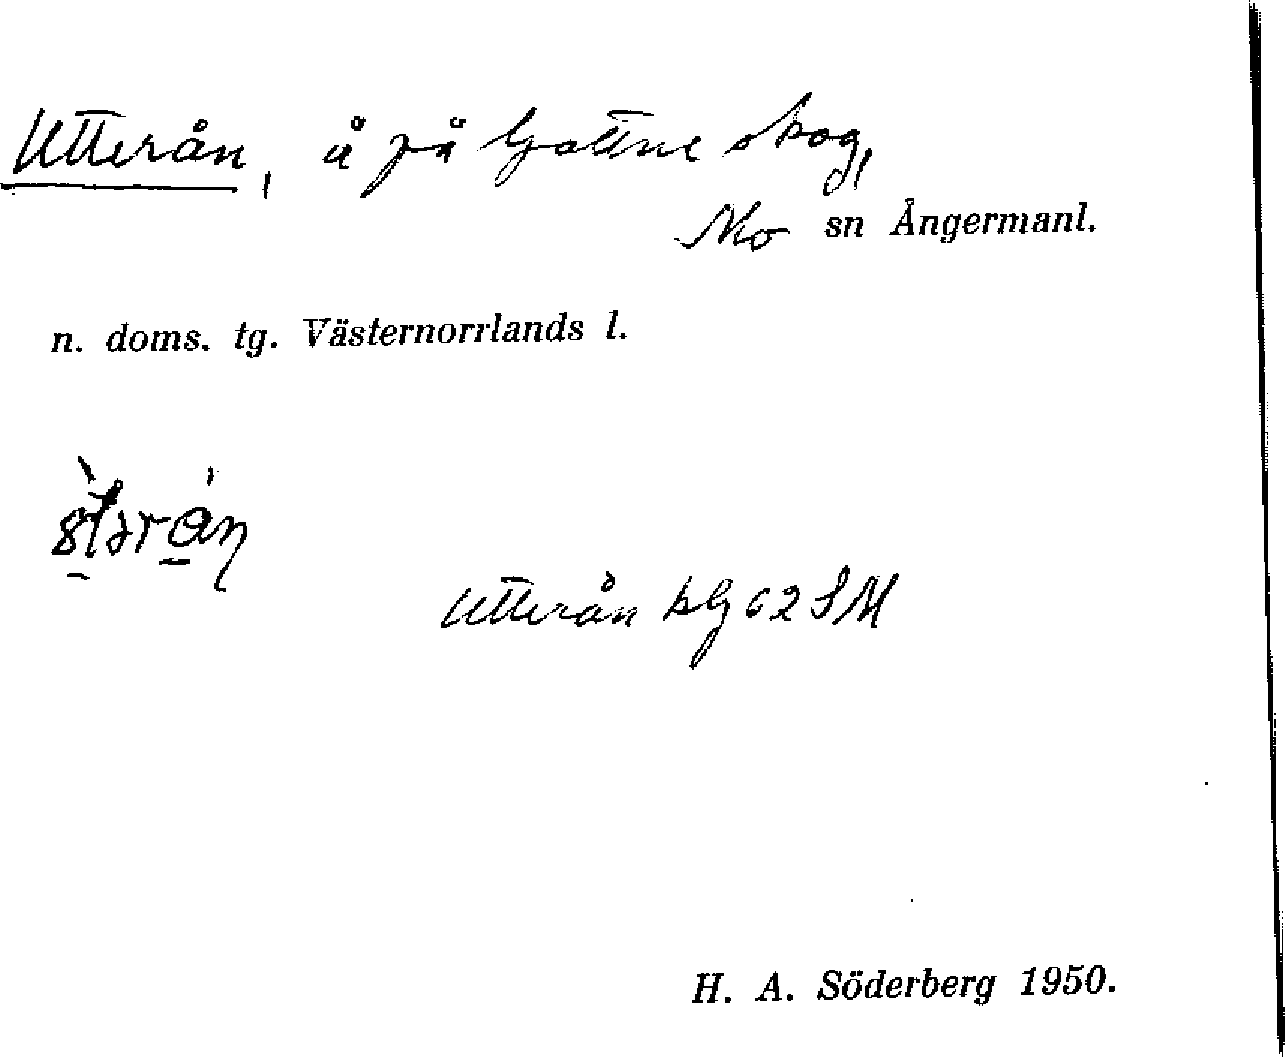 Utterån, å på Gottne skog,
Mo sn Ångermanl.
n. doms. tg. Västernorrlands l.
Utterån kG 62 SM
H. A. Söderberg 1950.